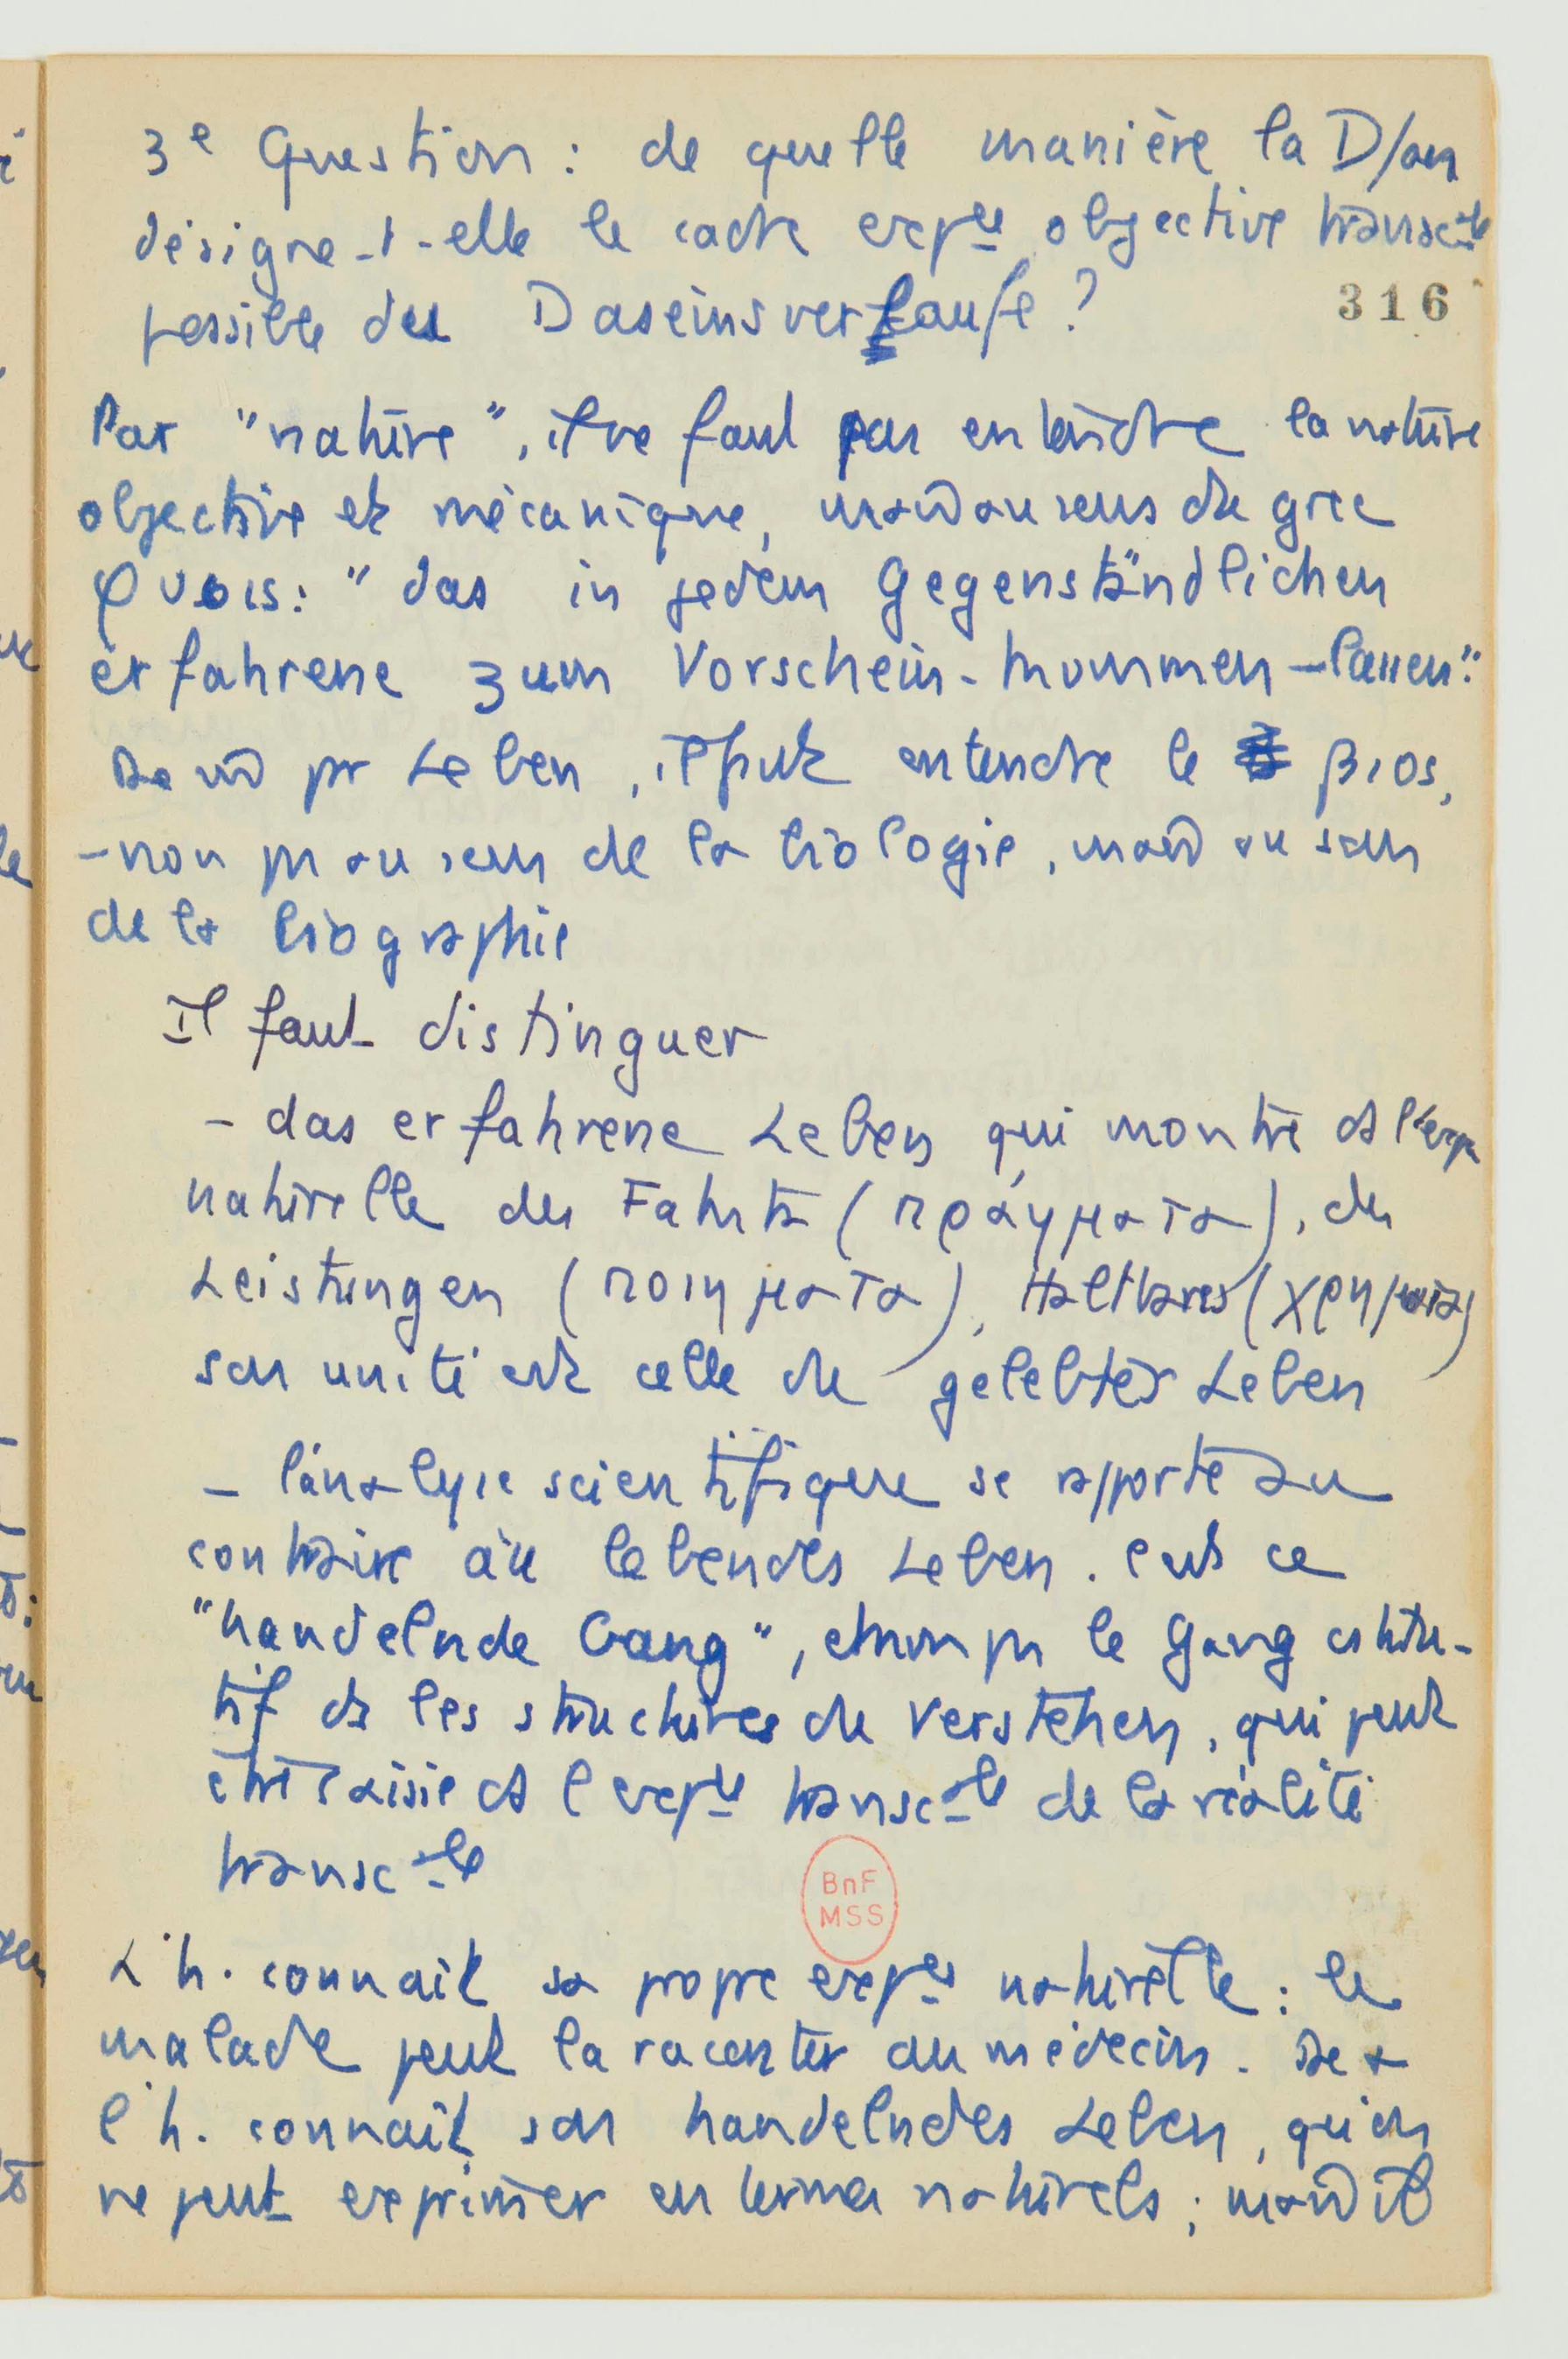 3e Question : de quelle manière la D/an
désigne-t-elle le cadre expce objective transcale
possible des Daseinsverlaufe ?
316
Par "nature", il ne faut pas entendre la nature
objective et mécanique, mais au sens du grec
φυσις : "das in jedem Gegenständlichen
erfahrene zum Vorschein-kommen-lassen".
De m̂ pr Leben, il faut entendre le βιος,
- non pas au sens de la biologie, mais au sens
de la biographie
Il faut distinguer
- das erfahrene Leben qui montre ds l'exp
naturelle des Fakta (πράγματα), des
Leistungen (ποιηματα), Haltbares (χρηματα)
son unité est celle de gelebtes Leben
- l'analyse scientifique se rapporte au
contraire au lebendes Leben. C'est ce
"handelnde Gang", et non pas le Gang cstitu-
tif ds les structures du Verstehen, qui peut
être saisie ds l'expce transcale de la réalité
transcale
BnF
MSS
L'h. connait sa propre expce naturelle : le
malade peut la raconter au médecin. De +
l'h. connait son handelndes Leben, qu'on
ne peut exprimer en termes naturels ; mais il